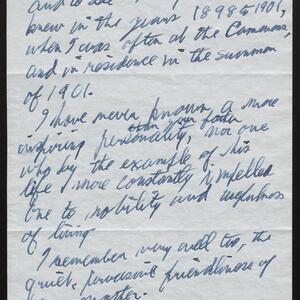 and to see
knew in the years 1898 to 1901,
when I was often at the Commons,
and in residence in the summer
of 1901.
I have never known a more
than your father
inspiring personality, nor one
who by the example of his
life more constantly impelled
one to nobility and usefulness
of living.
I remember very well too, the
quiet, pervasive friendliness of
mother.